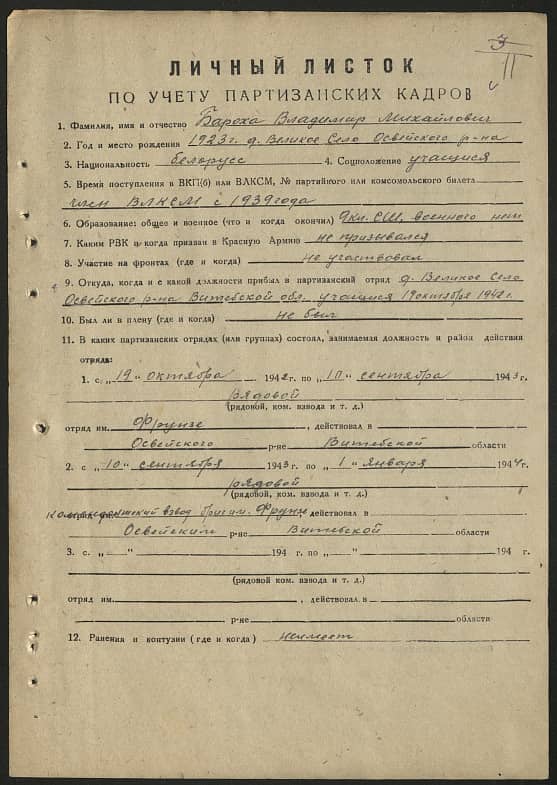 3
11
ЛИЧНЫЙ ЛИСТОК
ПО УЧЕТУ ПАРТИЗАНСКИХ КАДРОВ
1. Фамилия, имя и отчество Бароха Владимир Михайлович
2. Год и место рождения 1923 г. д. Великое Село Освейского р-на
3. Национальность белорусс 4. Соцположение учащийся
5. Время поступления в ВКП(б) или ВЛКСМ, № партийного или комсомольского билета
член ВЛКСМ с 1939 года
6. Образование: общее и военное (что и когда окончил) 9 кл. СШ, военного нет
7. Каким РВК и когда призван в Красную Армию не призывался
8. Участие на фронтах (где и когда) не участвовал
9. Откуда, когда и с какой должности прибыл в партизанский отряд д. Великое Село
Освейского р-на Витебской обл. учащийся 19 октября 1942 г.
10. Был ли в плену (где и когда) не был
11. В каких партизанских отрядах (или группах) состоял, занимаемая должность и район действия
отряда:
1. с „19" октября 1942 г. по „10" сентября 1943 г.
рядовой
(рядовой, ком. взвода и т. д.)
отряд им. Фрунзе, действовал в
Освейского р-не Витебской области
2. с „10" сентября 1943 г. по „1" января 1944 г.
рядовой
(рядовой, ком. взвода и т. д.)
комендантский взвод бриг. им. Фрунзе действовал в
Освейским р-не Витебской области
3. с „ " 194 г. по „ " 194 г.
(рядовой, ком. взвода и т. д.)
отряд им. , действовал в
р-не области
12. Ранения и контузии (где и когда) неимеет